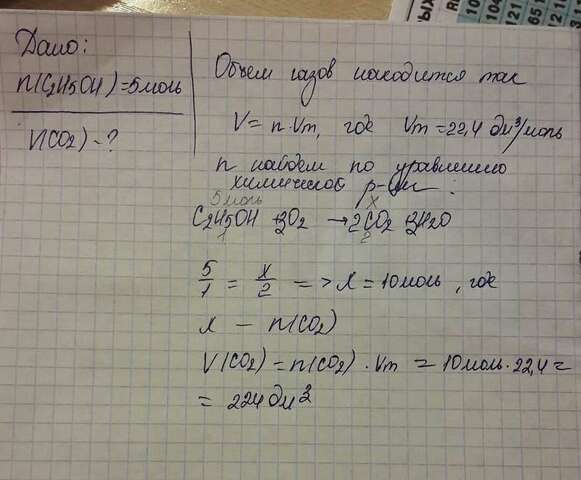 Дано:
n(C2H5OH)=5моль
V(CO2)-?
Объем газов находится так
V=n·Vm, где Vm=22,4 дм³/моль
n найдем по уравнению
химической р-ции:
5моль x
C2H5OH+3O2→2CO2+3H2O
1 2
5/1 = x/2 => x=10моль, где
x - n(CO2)
V(CO2)=n(CO2)·Vm=10моль·22,4=
= 224 дм³